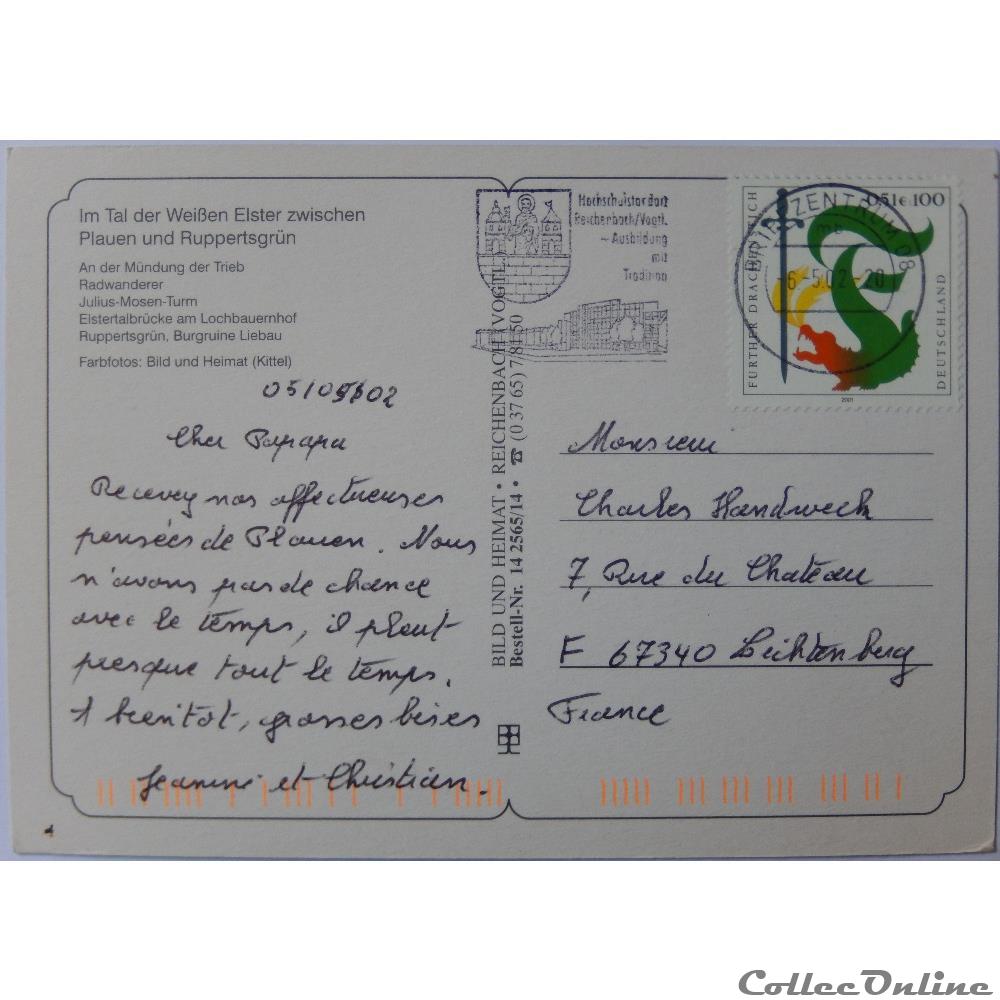 Im Tal der Weißen Elster zwischen
Plauen und Ruppertsgrün
An der Mündung der Trieb
Radwanderer
Julius-Mosen-Turm
Elstertalbrücke am Lochbauernhof
Ruppertsgrün, Burgruine Liebau
Farbfotos: Bild und Heimat (Kittel)
05/05/02
Cher Papapa
Recevez nos affectueuses
pensées de Plauen. Nous
n'avons pas de chance
avec le temps, il pleut
presque tout le temps.
A bientôt, grosses bises
Jeannine et Christian.
BILD UND HEIMAT • REICHENBACH (VOGTL.)
Bestell-Nr. 14 2565/14 • ☎ (0 37 65) 7 81 50
Hochschulstandort
Reichenbach/Vogtl.
- Ausbildung
mit
Tradition
BRIEFZENTRUM 08
mb
-6.-5.02-20
FURTHER DRACHENSTICH
0,51€ 100
DEUTSCHLAND
2001
Monsieur
Charles Handweck
7, Rue du Château
F 67340 Lichtenberg
France
4
CollecOnline